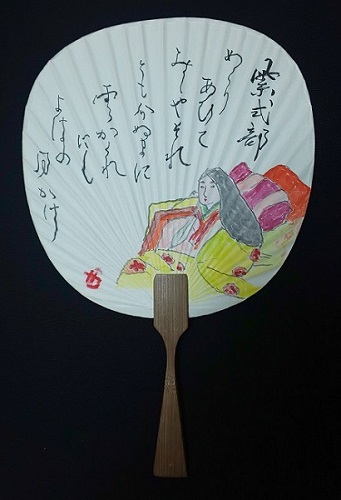 紫式部
めくり
あひて
みしやそれ
ともわかぬまに
雲かくれ
にし
よはの
月かけ